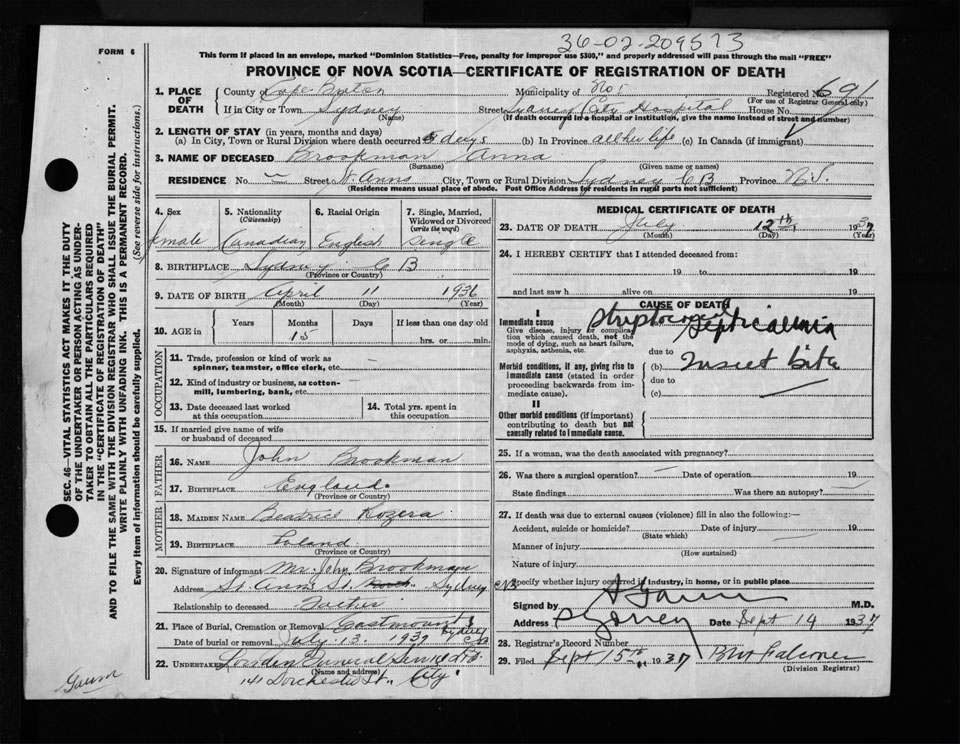 36-02-209573
FORM 6
This form if placed in an envelope, marked "Dominion Statistics—Free, penalty for improper use $300," and properly addressed will pass through the mail "FREE"
PROVINCE OF NOVA SCOTIA—CERTIFICATE OF REGISTRATION OF DEATH
1. PLACE OF DEATH
County of Cape Breton Municipality of No 1 Registered No. 691
(For use of Registrar General only)
If in City or Town Sydney Street Sydney City Hospital House No.
(Name) (If death occurred in a hospital or institution, give the name instead of street and number)
2. LENGTH OF STAY (in years, months and days)
(a) In City, Town or Rural Division where death occurred 5 days (b) In Province all her life (c) In Canada (if immigrant)
3. NAME OF DECEASED Brookman Anna
(Surname) (Given name or names)
RESIDENCE No. — Street St. Anns City, Town or Rural Division Sydney C B Province N.S.
(Residence means usual place of abode. Post Office Address for residents in rural parts not sufficient)
4. Sex
female
5. Nationality
(Citizenship)
Canadian
6. Racial Origin
English
7. Single, Married, Widowed or Divorced
(write the word)
Single
8. BIRTHPLACE Sydney C B
(Province or Country)
9. DATE OF BIRTH April 11 1936
(Month) (Day) (Year)
10. AGE in Years Months Days If less than one day old
15 hrs. or min.
OCCUPATION
11. Trade, profession or kind of work as spinner, teamster, office clerk, etc. —
12. Kind of industry or business, as cotton-mill, lumbering, bank, etc. —
13. Date deceased last worked at this occupation
14. Total yrs. spent in this occupation
15. If married give name of wife or husband of deceased
FATHER
16. NAME John Brookman
17. BIRTHPLACE England
(Province or Country)
MOTHER
18. MAIDEN NAME Beatrice Rozera
19. BIRTHPLACE Poland
(Province or Country)
20. Signature of informant Mr. John Brookman
Address St. Anns St. Sydney C B
Relationship to deceased Father
21. Place of Burial, Cremation or Removal Eastmount Sydney C B
Date of burial or removal July 13 1937
22. Undertaker Funeral Service Ltd
(Name and address)
141 Dorchester St., City
MEDICAL CERTIFICATE OF DEATH
23. DATE OF DEATH July 12th 1937
(Month) (Day) (Year)
24. I HEREBY CERTIFY that I attended deceased from:
19 to 19
and last saw h alive on 19
CAUSE OF DEATH
I
Immediate cause
Give disease, injury or complication which caused death, not the mode of dying, such as heart failure, asphyxia, asthenia, etc.
Streptococcal Septicaemia
due to
Morbid conditions, if any, giving rise to immediate cause (stated in order proceeding backwards from immediate cause).
(b) Insect bite
due to
(c)
II
Other morbid conditions (if important) contributing to death but not causally related to immediate cause.
25. If a woman, was the death associated with pregnancy?
26. Was there a surgical operation? — Date of operation 19
State findings Was there an autopsy? —
27. If death was due to external causes (violence) fill in also the following:—
Accident, suicide or homicide? Date of injury 19
(State which)
Manner of injury
(How sustained)
Nature of injury
Specify whether injury occurred in industry, in home, or in public place
Signed by A Gaum M.D.
Address Sydney Date Sept 14 1937
28. Registrar's Record Number
29. Filed Sept 15th 1937 Falconer
(Division Registrar)
Gaum
SEC. 46—VITAL STATISTICS ACT MAKES IT THE DUTY
OF THE UNDERTAKER OR PERSON ACTING AS UNDER-
TAKER TO OBTAIN ALL THE PARTICULARS REQUIRED
IN THE "CERTIFICATE OF REGISTRATION OF DEATH"
AND TO FILE THE SAME WITH THE DIVISION REGISTRAR WHO SHALL ISSUE THE BURIAL PERMIT.
WRITE PLAINLY WITH UNFADING INK. THIS IS A PERMANENT RECORD.
Every item of information should be carefully supplied. (See reverse side for instructions.)